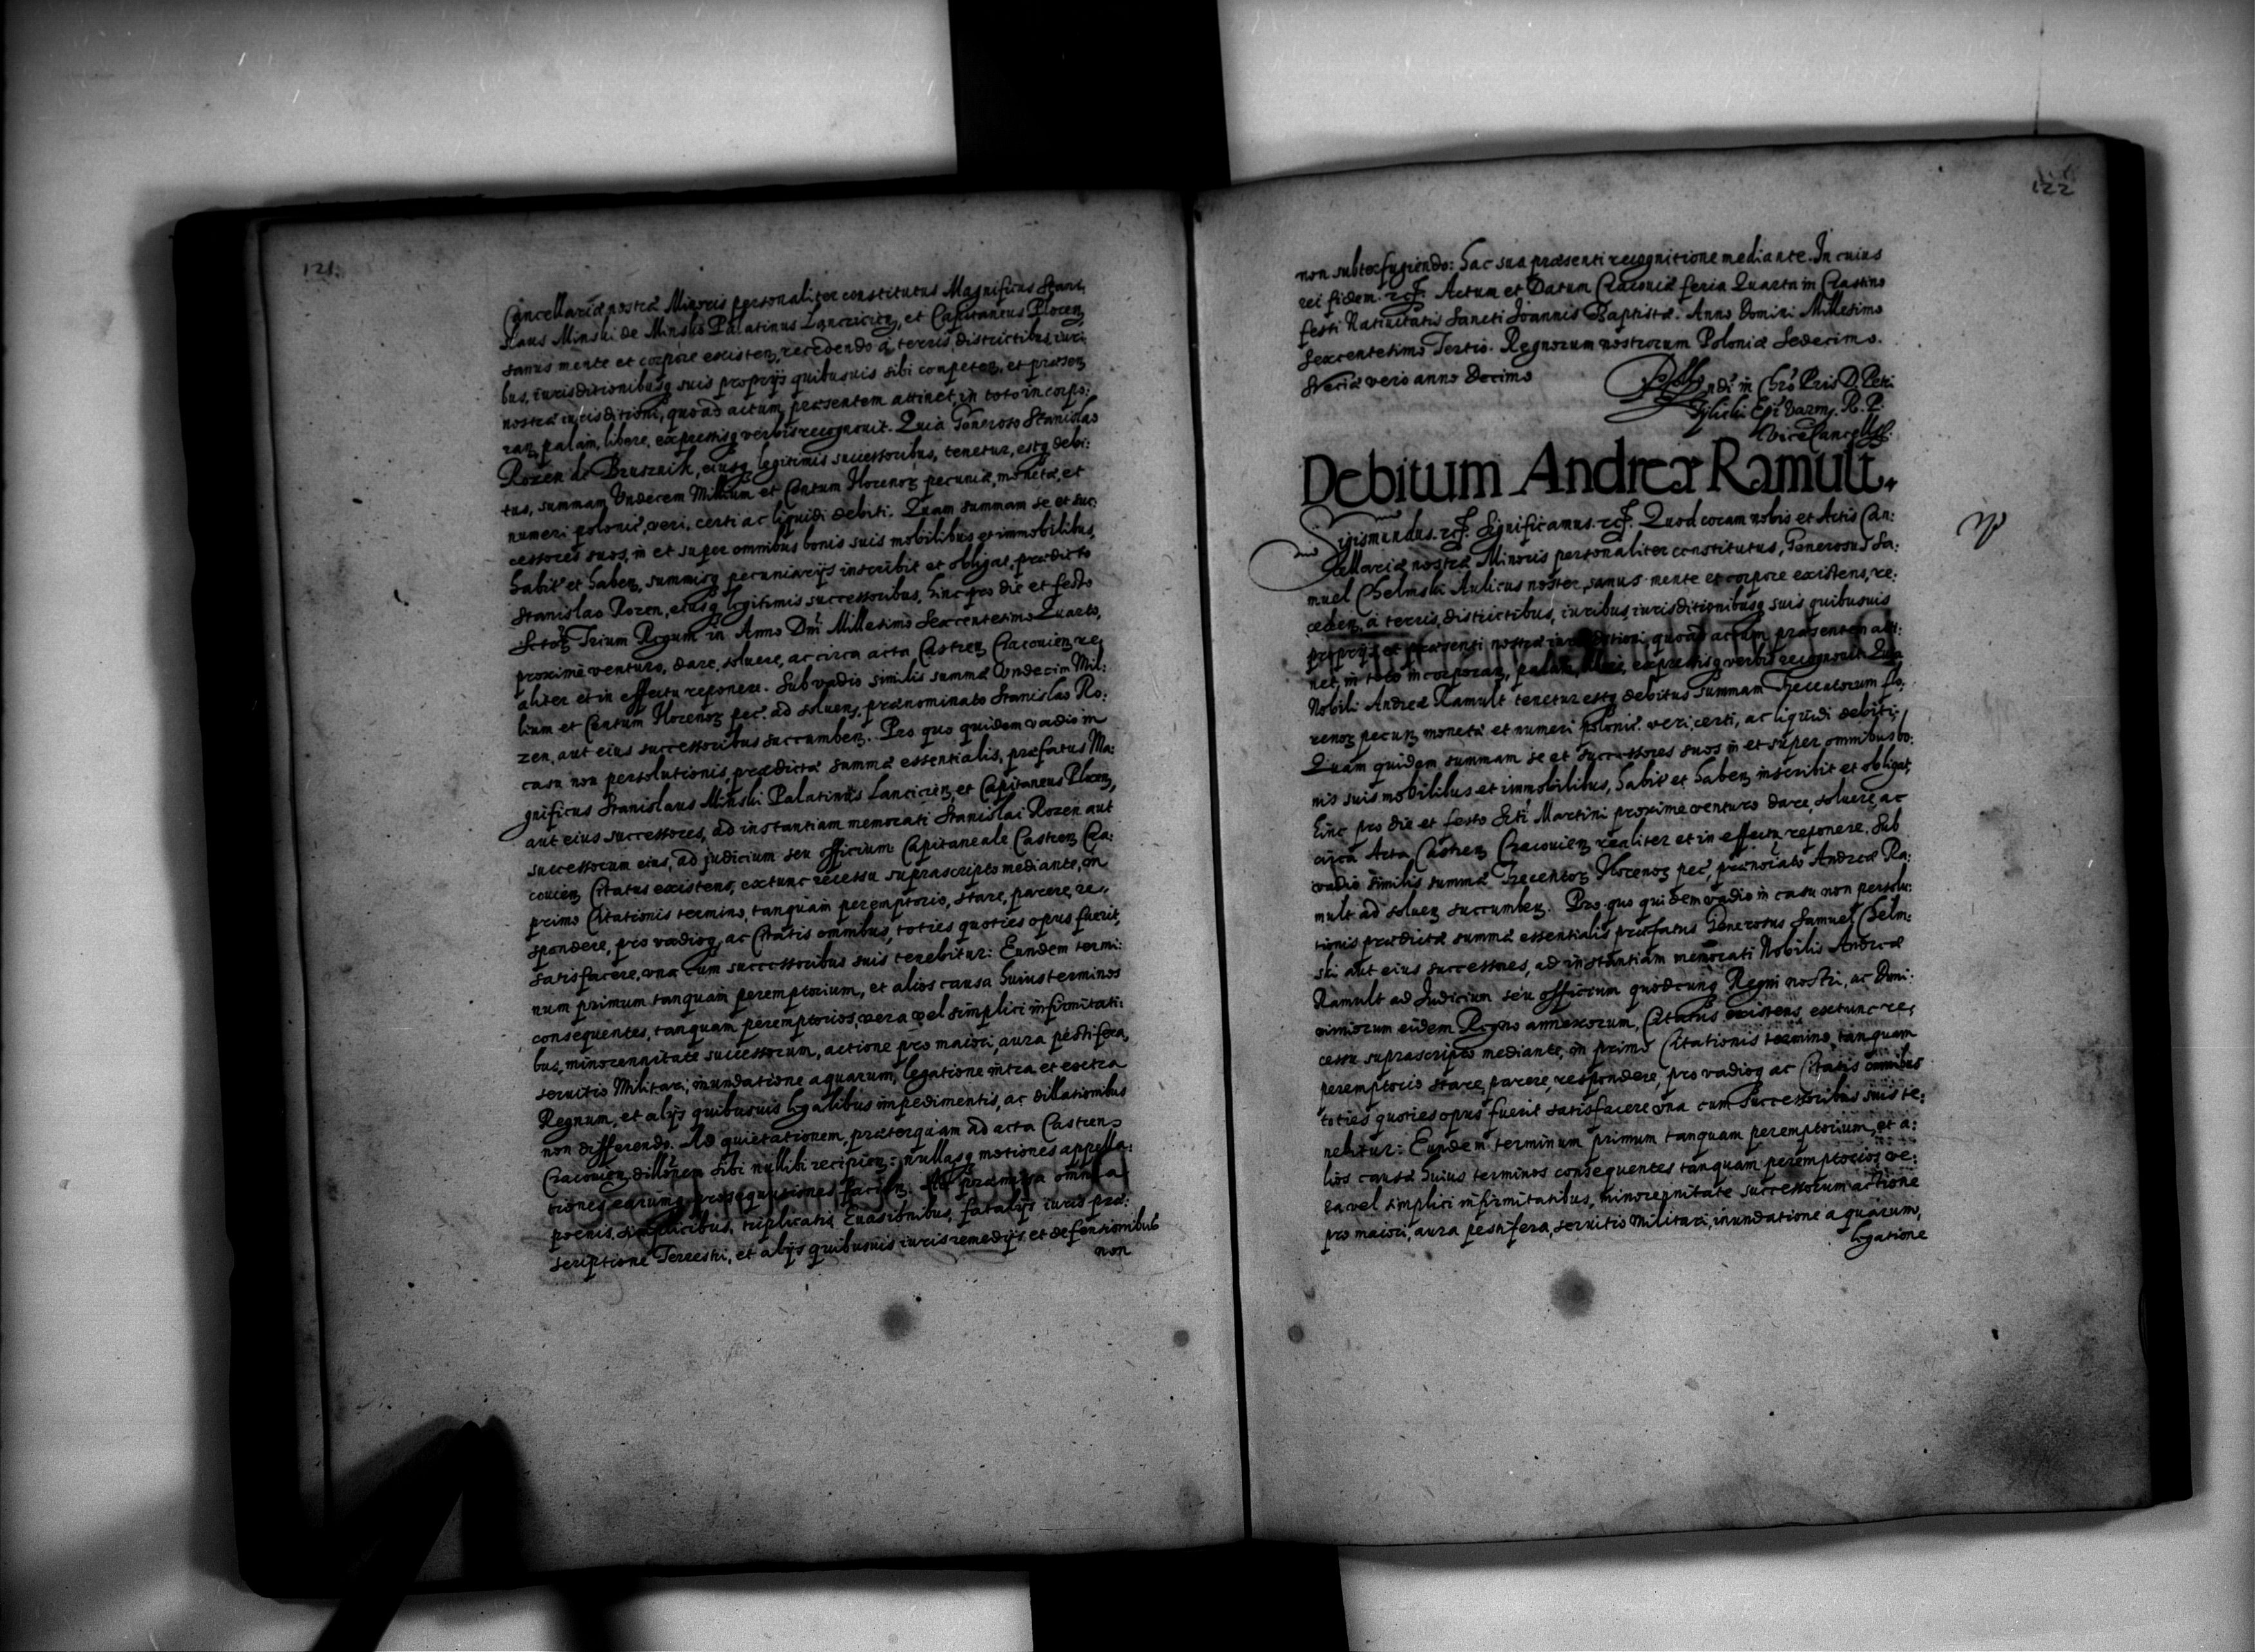 121.
Cancellariæ nostræ Minoris personaliter constitutus Magnificus Stani,
slaus Minski de Minsko Palatinus Lanciciẽn, et Capitaneus Plocen,
sanus mente et corpore existen, recedendo à terris, districtibus, iuri,
bus, iurisditionibusq suis proprijs quibusuis sibi conpeten, et præsen
nostræ iurisditioni, quoad actum præsentem attinet, in toto incorpo:
ran, palam, libere, expressisq verbis recognouit. Quia Generoso Stanislao
Rozen de Brusznik, eiusq legitimis successoribus, tenetur, estq debi:
tus, summam Undecem Millium et Centum florenoɀ pecuniæ, monetæ, et
numeri polonic, veri, certi ac liquidi debiti. Quam summam se et suc:
cessores suos, in et super omnibus bonis suis mobilibus et immobilibus,
habit et haben, summisq pecuniarijs inscribit et obligat, prædicto
Stanislao Rozen, eiusq legitimis successoribus, hinc pro die et festo
Sctoɀ Trium Regum in Anno Dñi Millesimo Sexcentesimo Quarto,
proxime venturo, dare, soluere, ac circa acta Castren Cracouien re,
aliter et in effectu reponere. Sub vadio similis summæ Undecim Mil:
lium et Centum florenoɀ pec. ad soluen, prænominato Stanislao Ro:
zen, aut eius successoribus succumben. Pro quo quidem vadio in
casu non persolutionis, prædictæ summæ essentialis, præfatus Ma:
gnificus Stanislaus Minski Palatinus Lanciciẽn, et Capitaneus Plocen,
aut eius successores, ad instantiam memorati Stanislai Rozen aut
successorum eius, ad judicium seu officium Capitaneale Castren Cra:
couien Citatus existens, extunc recessu suprascripto mediante, in
primo Citationis termino, tanquam peremptorio, stare, parere, re,
spondere, pro vadioq ac Citatis omnibus, toties quoties opus fuerit,
satisfacere, vna cum successoribus suis tenebitur: Eundem termi:
num primum tanquam peremptorium, et alios causa huius terminos
consequentes, tanquam peremptorios, vera vel simplici infirmitati:
bus, minorennitate successorum, actione pro maiori, aura pestifera,
seruitio Militari, inundatione aquarum, legatione intra et extra
Regnum, et alijs quibusuis legalibus impedimentis, ac dillationibus
non differendo. Ad quietationem, præterquam ad acta Castren
Cracouien dillõnem sibi nullibi recipien: nullasq motiones appella:
tiones earumq prosequutiones facien. Ac præmissa omnia
pœnis, simplicibus, triplicatis Euasionibus, fatalijs iuris præ:
scriptione Terrestri, et alijs quibusuis iuris remedijs et defensionibus
non
122
non subterfugiendo: hac sua præsenti recognitione mediante. In cuius
rei fidem. rcſ. Actum et Datum Cracouiæ feria Quarta in Crastino
festi Natiuitatis Sancti Joannis Baptistæ. Anno Domini Millesimo
Sexcentesimo Tertio. Regnorum nostrorum Poloniæ Sedecimo.
Sveciæ vero anno Decimo
Rndi in Chrõ Pris D. Petri
Tylicki Epi Varm. R. P.
ViceCancellij.
Debitum Andreæ Ramult.
Sigismundus. rcſ. Significamus. rcſ. Quod coram nobis et Actis Can:
cellariæ nostræ Minoris personaliter constitutus, Generosus Sa:
muel Chelmski Aulicus noster, sanus mente et corpore existens, re:
ceden, à terris, districtibus, iuribus, iurisditionibusq suis quibusuis
proprijs et præsenti nostræ iurisditioni, quoad actum præsentem atti:
net, in toto incorporan, palam, libere, expressisq verbis recognouit. Quia
Nobili Andreæ Ramult tenetur estq debitus summam Trecentorum flo,
renoɀ pecun monetæ et numeri polonic. veri, certi, ac liquidi debiti,
Quam quidem summam se et successores suos in et super omnibus bo:
nis suis mobilibus et immobilibus, habit et haben, inscribit et obligat,
hinc pro die et festo Scti Martini proxime venturo dare, soluere, ac
circa Acta Castren Cracouien realiter et in effectu reponere. Sub
vadio similis summæ Trecentoɀ florenoɀ pec, prænoiato Andreæ Ra:
mult ad soluen succumben. Pro quo quidem vadio in casu non persolu:
tionis prædictæ summæ essentialis præfatus Generosus Samuel Chelm:
ski aut eius successores, ad instantiam memorati Nobilis Andreæ
Ramult ad Judicium seu officium quodcunq Regni nostri, ac Domi:
niorum eidem Regno annexorum, Citatus existens, extunc re,
cessu suprascripto mediante, in primo Citationis termino, tanquam
peremptorio stare, parere, respondere, pro vadioq ac Citatis omnibus
toties quoties opus fuerit satisfacere vna cum Successoribus suis te:
nebitur: Eundem terminum primum tanquam peremptorium, et a:
lios causæ huius terminos consequentes tanquam peremptorios, ve:
ra vel simplici infirmitatibus, minorennitate successorum actione
pro maiori, aura pestifera, seruitio Militari, inundatione aquarum,
legatione